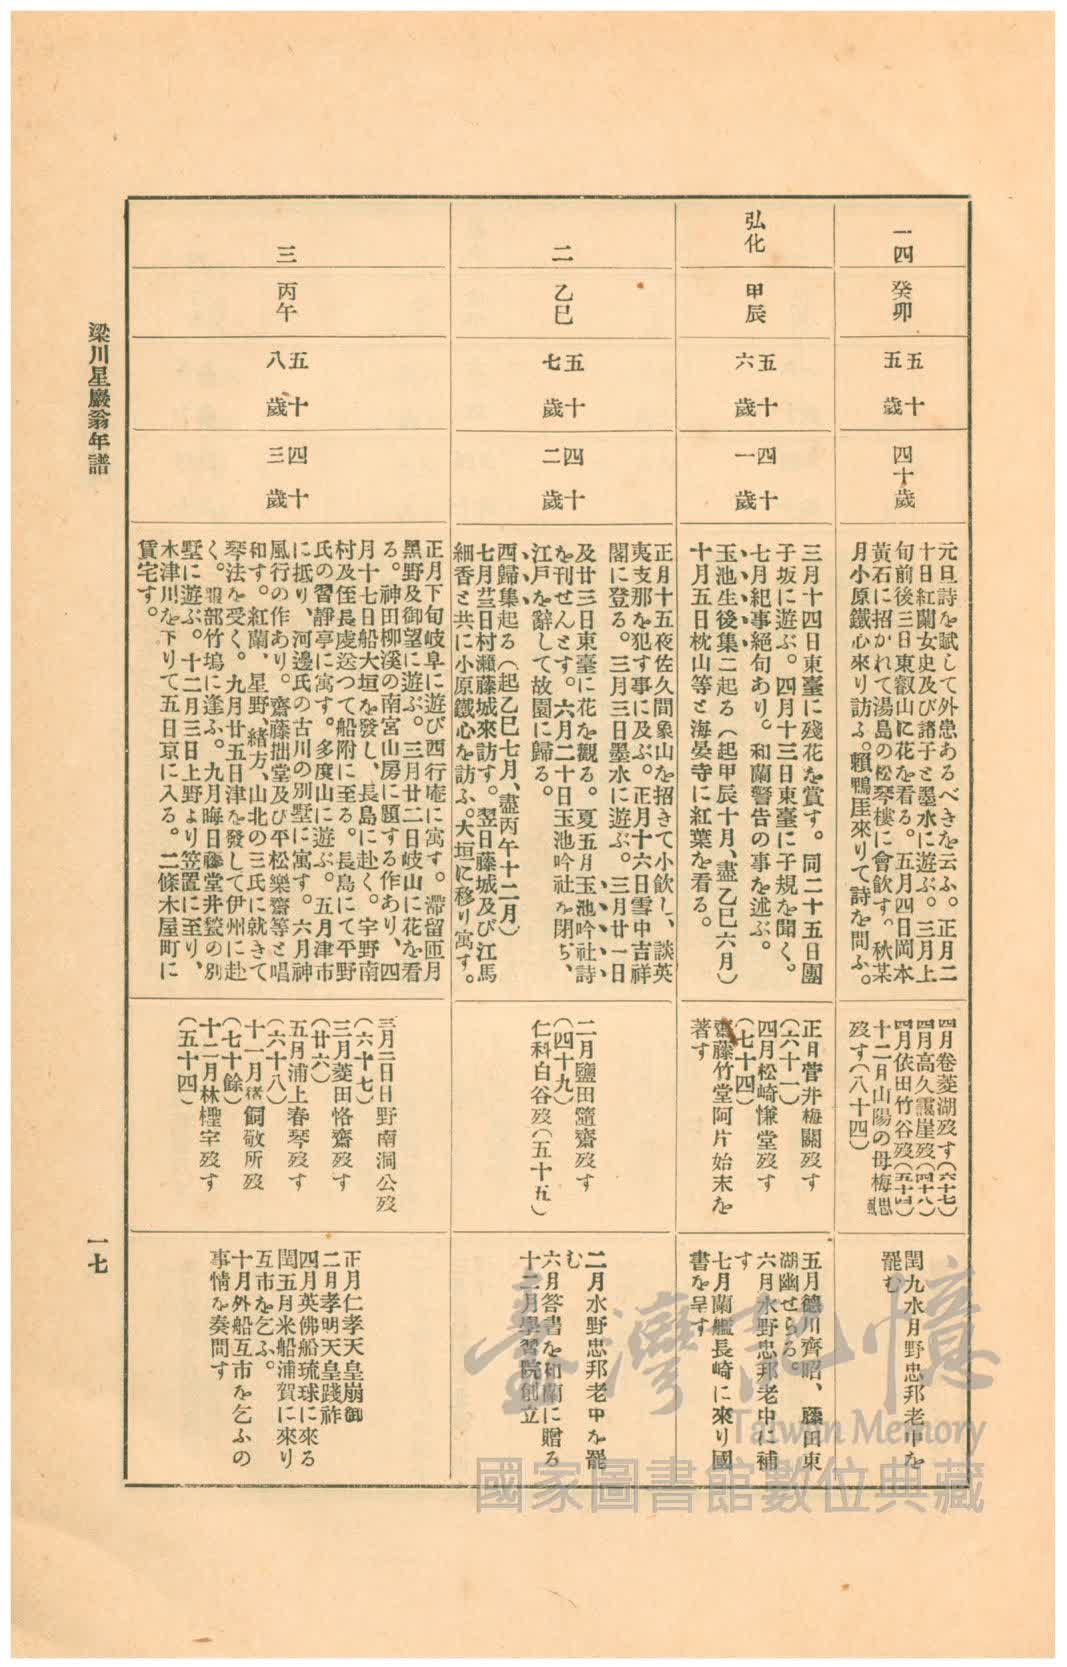 一四
癸卯
五十
五歲
四十歲
元旦詩を賦して外患あるべきを云ふ。正月二
十日紅蘭女史及び諸子と墨水に遊ぶ。三月上
旬前後三日東叡山に花を看る。五月四日岡本
黃石に招かれて湯島の松琴樓に會飮す。秋某
月小原鐵心來り訪ふ。賴鴨厓來りて詩を問ふ。
四月卷菱湖歿す(六十七)
四月高久靄崖歿(四十八)
四月依田竹谷歿(五十四)
十二月山陽の母梅颸
歿す(八十四)
閏九水月野忠邦老中を
罷む
弘化
甲辰
五十
六歲
四十
一歲
三月十四日東臺に殘花を賞す。同二十五日團
子坂に遊ぶ。四月十三日東臺に子規を聞く。
七月紀事絕句あり。和蘭警告の事を述ぶ。
玉池生後集二起る(起甲辰十月、盡乙巳六月)
十月五日枕山等と海晏寺に紅葉を看る。
正月菅井梅關歿す
(六十一)
四月松崎慊堂歿す
(七十四)
齋藤竹堂阿片始末を
著す
五月德川齊昭、藤田東
湖幽せらる。
六月水野忠邦老中に補
す
七月蘭艦長崎に來り國
書を呈す
二
乙巳
五十
七歲
四十
二歲
正月十五夜佐久間象山を招きて小飮し、談英
夷支那を犯す事に及ぶ。正月十六日雪中吉祥
閣に登る。三月三日墨水に遊ぶ。三月廿一日
及廿三日東臺に花を觀る。夏五月玉池吟社詩
を刊せんとす。六月二十日玉池吟社を閉ぢ、
江戶を辭して故園に歸る。
西歸集起る(起乙巳七月、盡丙午十二月)
七月廿一日村瀨藤城來訪す。翌日藤城及び江馬
細香と共に小原鐵心を訪ふ。大垣に移り寓す。
二月鹽田隨齋歿す
(四十九)
仁科白谷歿(五十五)
二月水野忠邦老中を罷
む
六月答書を和蘭に贈る
十二月學習院創立
三
丙午
五十
八歲
四十
三歲
正月下旬岐阜に遊び西行庵に寓す。滯留匝月
黑野及御望に遊ぶ。三月廿二日岐山に花を看
る。神田柳溪の南宮山房に題する作あり、四
月十七日船大垣を發し、長島に赴く。宇野南
村及侄長虔送つて船附に至る。長島にて平野
氏の習靜亭に寓す。多度山に遊ぶ。五月津市
に抵り、河邊氏の古川の別墅に寓す。六月神
風行の作あり。齋藤拙堂及び平松樂齋等と唱
和す。紅蘭、星野、緖方、山北の三氏に就きて
琴法を受く。九月廿五日津を發して伊州に赴
く。服部竹塢に逢ふ。九月晦日藤堂井蓌の別
墅に遊ぶ。十二月三日上野より笠置に至り、
木津川を下りて五日京に入る。二條木屋町に
賃宅す。
三月二日日野南洞公歿
(六十七)
三月菱田恪齋歿す
(廿六)
五月浦上春琴歿す
(六十八)
十一月猪飼敬所歿
(七十餘)
十二月林檉宇歿す
(五十四)
正月仁孝天皇崩御
二月孝明天皇踐祚
四月英佛船琉球に來る
閏五月米船浦賀に來り
互市を乞ふ。
十月外船互市を乞ふの
事情を奏問す
梁川星巖翁年譜
一七
臺灣記憶
Taiwan Memory
國家圖書館數位典藏